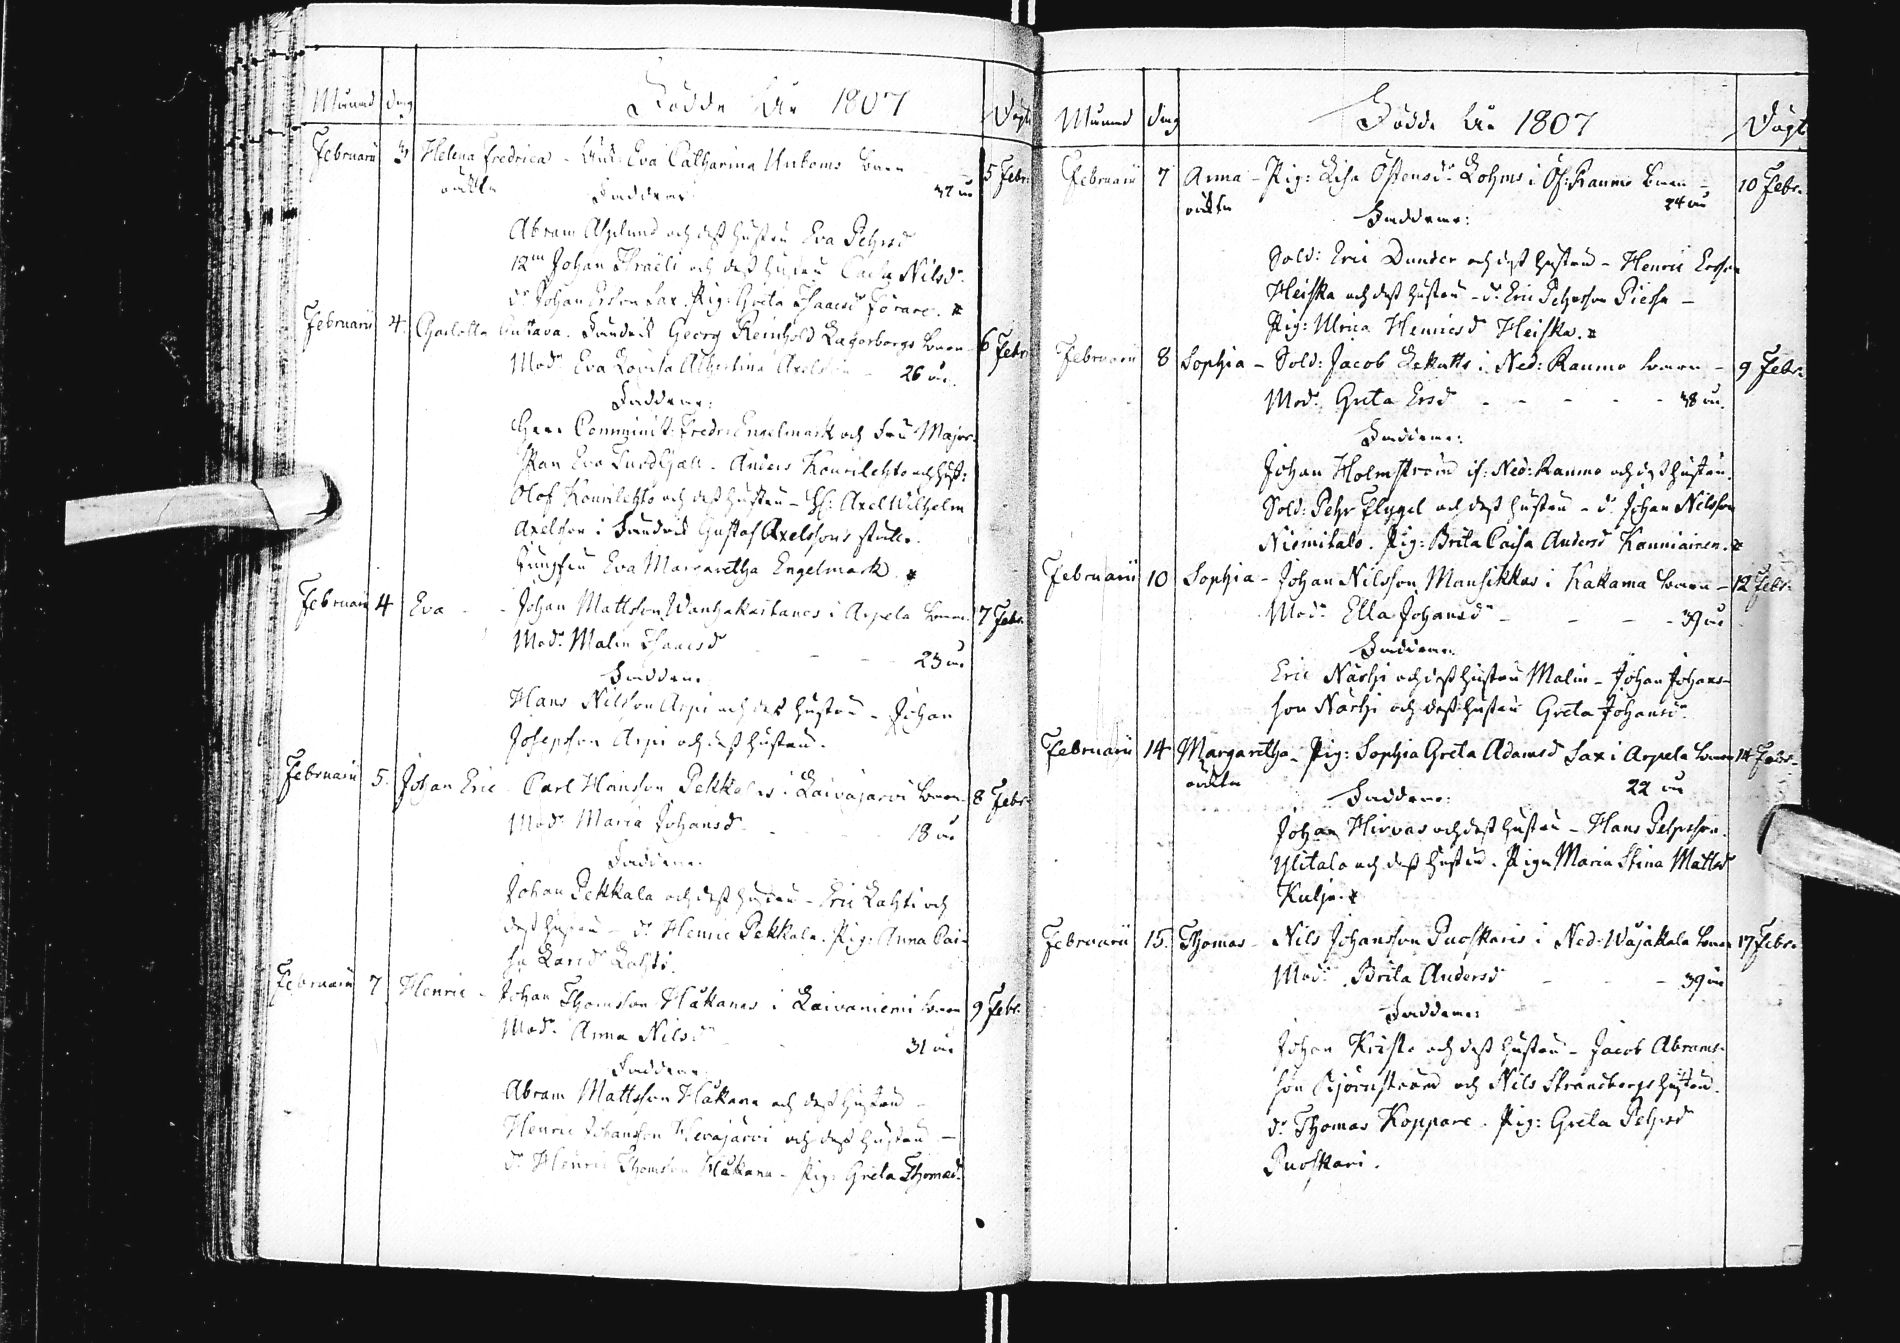 Månad dag Födde År 1807 Döpt
Februarii 3 Helena Fredrica - Enk: Eva Catharina barn 5 Febr:
oäkta Faddrar: 32 år
Abram Asplund och dess hustru Eva Pehrsd:
Johan Israeli och dess hustru Caisa Nilsd:
dr: Johan Ersson Lax. Pig: Greta Isaacsd: Förare.
Februarii 4 Charlotta Gustava. Fendrick Georg Reinhold Lagerborgs barn 6 Febr:
Mod: Eva Lovisa Albertina 26 år.
Faddrar:
Herr Comminist: Fredr: Engelmark och Fru Major-
skan Eva - Anders Kourilehto och hust:
Olof Kourilehto och dess hustru - Axel Wilhelm
Axelsson i Fendrick Gustaf Axelssons ställe.
Jungfru Eva Margaretha Engelmark.
Februarii 4 Eva - Johan Mattsson Wanhakaitanes i Arpela barn 7 Febr:
Mod: Malin Isaacsd: 23 år
Faddrar:
Hans Nilsson Arpi och dess hustru - Johan
Josepsson Arpi och dess hustru.
Februarii 5. Johan Eric - Carl Hansson Pekkalas i Laivajärvi barn 8 Febr:
Mod: Maria Johansd: 18 år
Faddrar:
Johan Pekkala och dess hustru - Eric Lahti och
dess hustru - dr: Henric Pekkala. Pig: Anna Cai-
sa Larsd: Lahti.
Februarii 7 Henric - Johan Thomsson Hakanes i Laivaniemi barn 9 Febr:
Mod: Anna Nilsd: 31 år
Faddrar:
Abram Mattsson Hakana och dess hustru -
Henric Johansson Kevajärvi och dess hustru -
dr: Henric Thomsson Hakana - Pig: Greta Thomasd:
Månad dag Födde År 1807 Döpt
Februarii 7 Anna - Pig: Lisa Östensd: Lohms i Öf: Raumo barn - 10 Febr:
oäkta Faddrar: 24 år
Sold: Eric Dunder och dess hustru - Henric Ersson
Heiska och dess hustru - dr: Eric Pehrsson Piessa -
Pig: Ulrica Henricsd: Heiska.
Februarii 8 Sophia - Sold: Jacob Lekatts i Ned: Raumo barn - 9 Febr:
Mod: Greta Ersd: - - - - - 38 år.
Faddrar:
Johan Holmström if: Ned: Raumo och dess hustru.
Sold: Pehr Flygel och dess hustru - dr: Johan Nilsson
Niemitalo. Pig: Brita Caisa Andersd: Kanniainen.
Februarii 10 Sophia - Johan Nilsson Mansikkas i Kakama barn - 12 Febr:
Mod: Ella Johansd: - - - - 39 år
Faddrar:
Eric Närhi och dess hustru Malin - Johan Johans-
son Närhi och dess hustru Greta Johansd:
Februarii 14 Margaretha - Pig: Sophia Greta Adamsd: Lax i Arpela barn 14 Febr:
oäkta Faddrar: 22 år
Johan Hirvas och dess hustru - Hans Pehrsson
Ylitalo och dess hustru. Pigan Maria Stina Mattsd:
Kulju.
Februarii 15. Thomas - Nils Johansson Puoskaris i Ned: Wojakala barn 17 Febr:
Mod: Brita Andersd: - - - 39 år
Faddrar:
Johan Krista och dess hustru - Jacob Abrams-
son Björnström och Nils Strandbergs hustru.
dr: Thomas Koppare. Pig: Greta Pehrsd:
Puoskari.